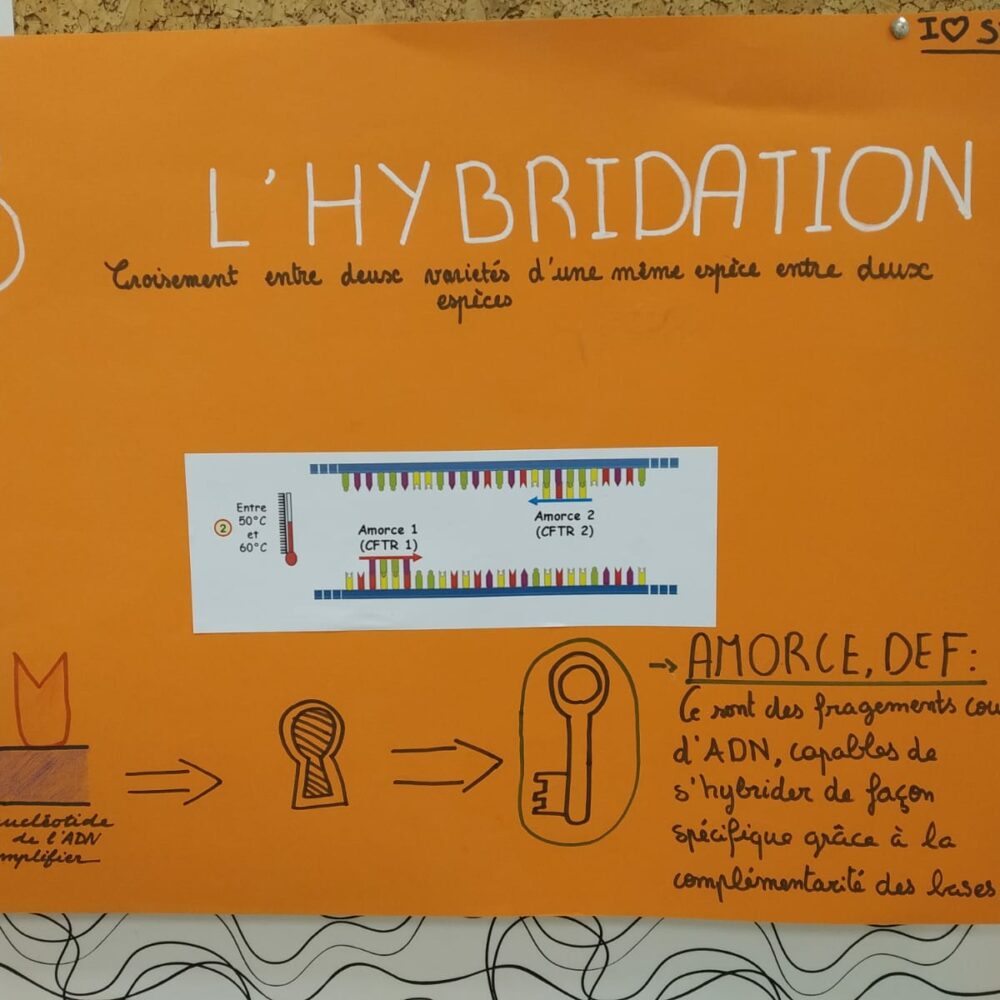 I♡
L'HYBRIDATION
Croisement entre deux varietés d'une même espèce entre deux
espèces
2
Entre
50°C
et
60°C
Amorce 1
(CFTR 1)
Amorce 2
(CFTR 2)
→ AMORCE, DEF:
Ce sont des fragements
d'ADN, capables de
s'hybrider de façon
spécifique grâce à la
complémentarité des bases
nucléotide
de l'ADN